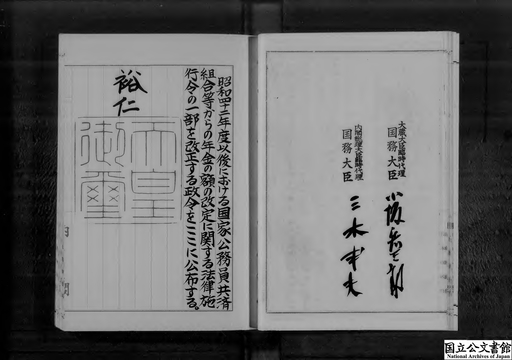 昭和四十二年度以後における国家公務員共済
組合等からの年金の額の改定に関する法律施
行令の一部を改正する政令をここに公布する。
裕仁
天皇
御璽
大蔵大臣臨時代理
国務大臣
内閣総理大臣臨時代理
国務大臣 三木武夫
国立公文書館
National Archives of Japan